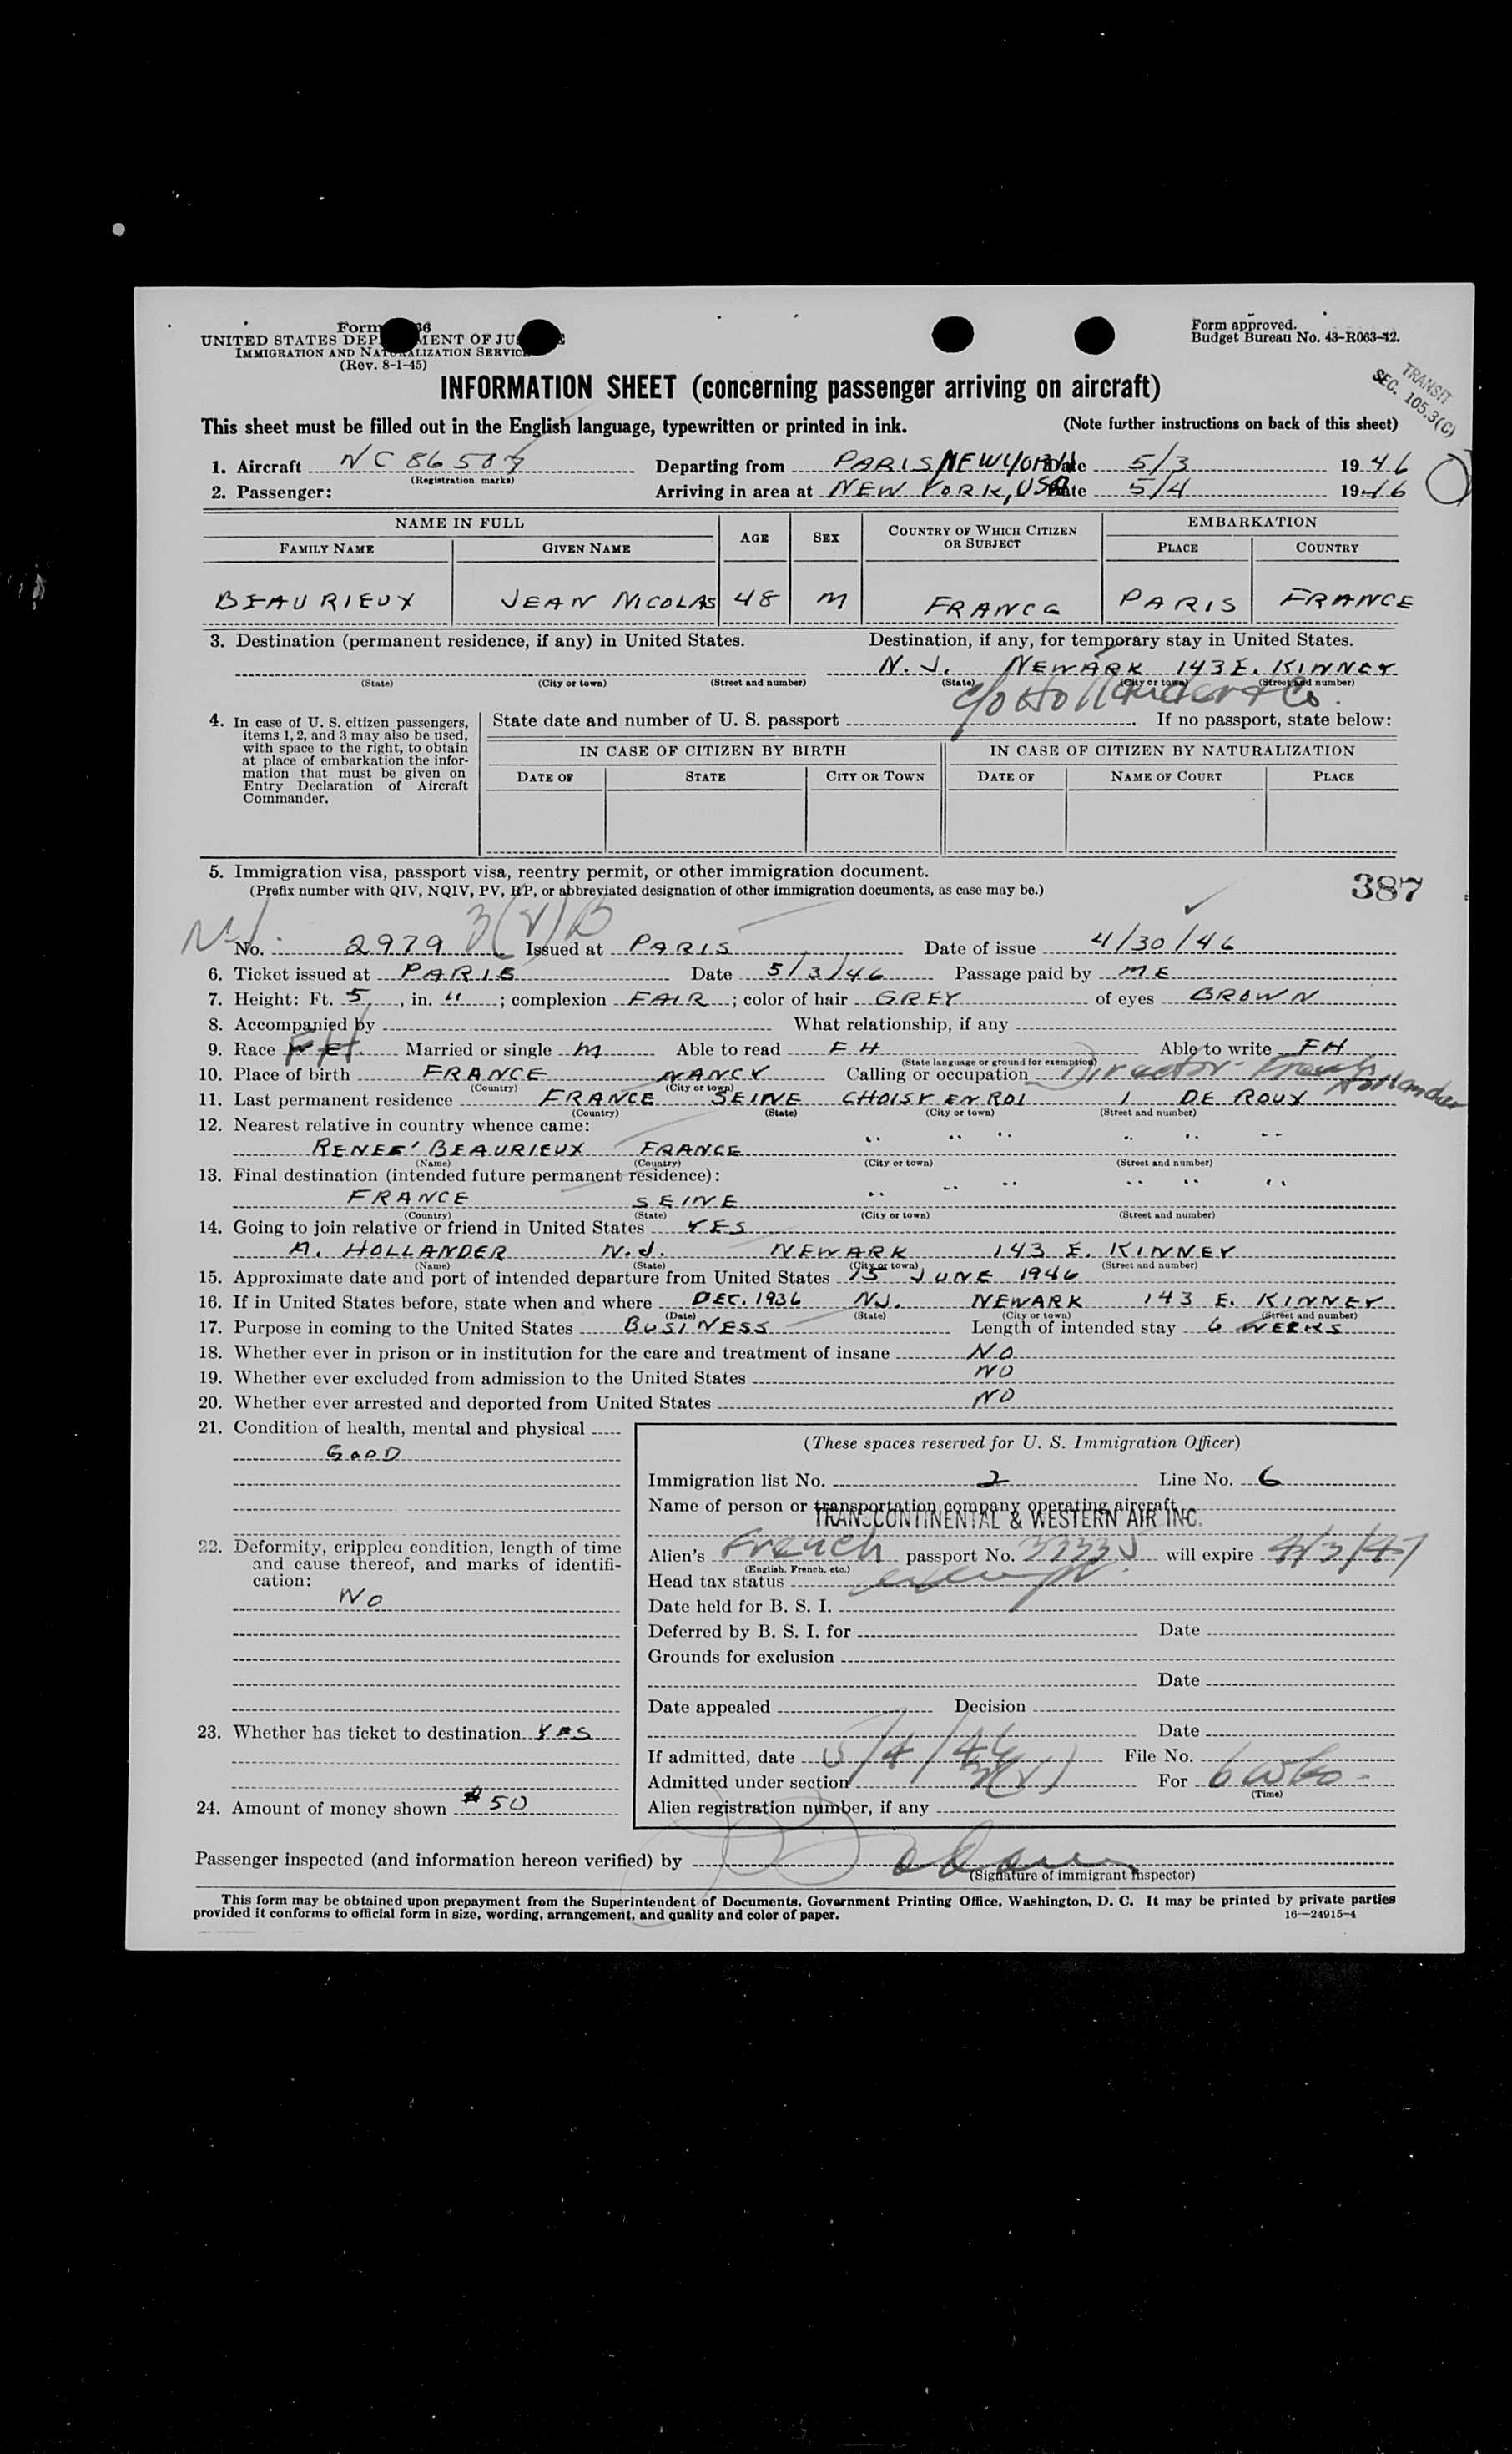 UNITED STATES DEP MENT OF JU E
IMMIGRATION AND NATURALIZATION SERVIC
(Rev. 8-1-45)
Form approved.
Budget Bureau No. 43-R063-42.
TRANSIT
SEC. 105.3(C)
INFORMATION SHEET (concerning passenger arriving on aircraft)
This sheet must be filled out in the English language, typewritten or printed in ink. (Note further instructions on back of this sheet)
1. Aircraft NC 86 Departing from PARIS NEW YORK Date 5/3 1946
(Registration marks)
2. Passenger: Arriving in area at NEW YORK, USA Date 5/4 1946
NAME IN FULL AGE SEX COUNTRY OF WHICH CITIZEN OR SUBJECT EMBARKATION
FAMILY NAME GIVEN NAME PLACE COUNTRY
BEAURIEUX JEAN NICOLAS 48 M FRANCE PARIS FRANCE
3. Destination (permanent residence, if any) in United States. Destination, if any, for temporary stay in United States.
N. J. NEWARK 143 E. KINNEY
(State) (City or town) (Street and number) (State) (City or town) (Street and number)
c/o Hollander & Co.
4. In case of U. S. citizen passengers, items 1, 2, and 3 may also be used, with space to the right, to obtain at place of embarkation the information that must be given on Entry Declaration of Aircraft Commander.
State date and number of U. S. passport . If no passport, state below:
IN CASE OF CITIZEN BY BIRTH IN CASE OF CITIZEN BY NATURALIZATION
DATE OF STATE CITY OR TOWN DATE OF NAME OF COURT PLACE
5. Immigration visa, passport visa, reentry permit, or other immigration document.
(Prefix number with QIV, NQIV, PV, RP, or abbreviated designation of other immigration documents, as case may be.)
387
3(V)B
No. 2979 Issued at PARIS Date of issue 4/30/46
6. Ticket issued at PARIS Date 5/3/46 Passage paid by ME
7. Height: Ft. 5, in. 4; complexion FAIR; color of hair GREY of eyes BROWN
8. Accompanied by What relationship, if any
9. Race FH. Married or single M Able to read FH Able to write FH
(State language or ground for exemption)
10. Place of birth FRANCE NANCY Calling or occupation Director - French Hollander
(Country) (City or town)
11. Last permanent residence FRANCE SEINE CHOISY EN ROI 1 DE ROUX
(Country) (State) (City or town) (Street and number)
12. Nearest relative in country whence came:
RENEE' BEAURIEUX FRANCE " " " " " "
(Name) (Country) (City or town) (Street and number)
13. Final destination (intended future permanent residence):
FRANCE SEINE " " " " " "
(Country) (State) (City or town) (Street and number)
14. Going to join relative or friend in United States YES
A. HOLLANDER N.J. NEWARK 143 E. KINNEY
(Name) (State) (City or town) (Street and number)
15. Approximate date and port of intended departure from United States 15 JUNE 1946
16. If in United States before, state when and where DEC. 1936 NJ. NEWARK 143 E. KINNEY
(Date) (State) (City or town) (Street and number)
17. Purpose in coming to the United States BUSINESS Length of intended stay 6 WEEKS
18. Whether ever in prison or in institution for the care and treatment of insane NO
19. Whether ever excluded from admission to the United States NO
20. Whether ever arrested and deported from United States NO
21. Condition of health, mental and physical
GOOD
22. Deformity, crippled condition, length of time and cause thereof, and marks of identification:
NO
23. Whether has ticket to destination YES
24. Amount of money shown $50
(These spaces reserved for U. S. Immigration Officer)
Immigration list No. 2 Line No. 6
Name of person or transportation company operating aircraft
TRANSCONTINENTAL & WESTERN AIR INC.
Alien's French passport No. will expire 4/3/47
(English, French, etc.)
Head tax status exempt.
Date held for B. S. I.
Deferred by B. S. I. for Date
Grounds for exclusion
Date
Date appealed Decision
Date
If admitted, date 5/4/46 File No.
Admitted under section 3(V) For 6 wks -
(Time)
Alien registration number, if any
Passenger inspected (and information hereon verified) by
(Signature of immigrant inspector)
This form may be obtained upon prepayment from the Superintendent of Documents, Government Printing Office, Washington, D. C. It may be printed by private parties
provided it conforms to official form in size, wording, arrangement, and quality and color of paper. 16—24915-4